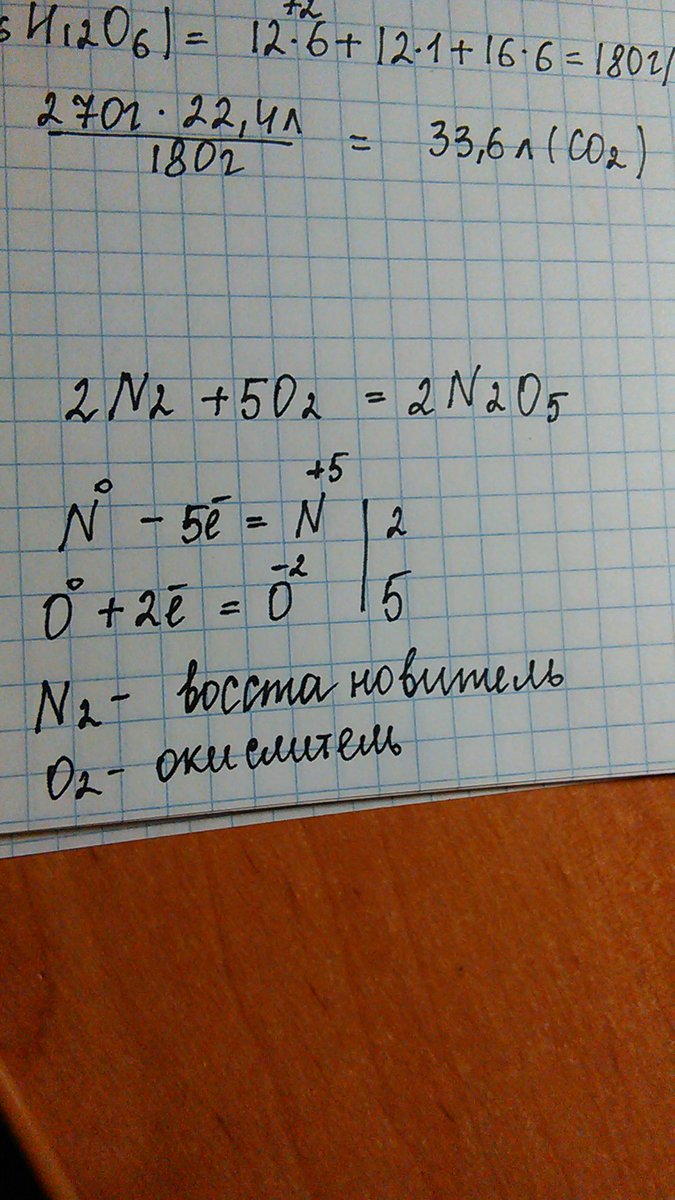 +2
H12O6) = 12·6 + 12·1 + 16·6 = 180г/
270г · 22,4л
180г
= 33,6 л (CO2)
2N2 + 5O2 = 2N2O5
N⁰ - 5ē = N⁺⁵ | 2
O⁰ + 2ē = O⁻² | 5
N2 - восстановитель
O2 - окислитель